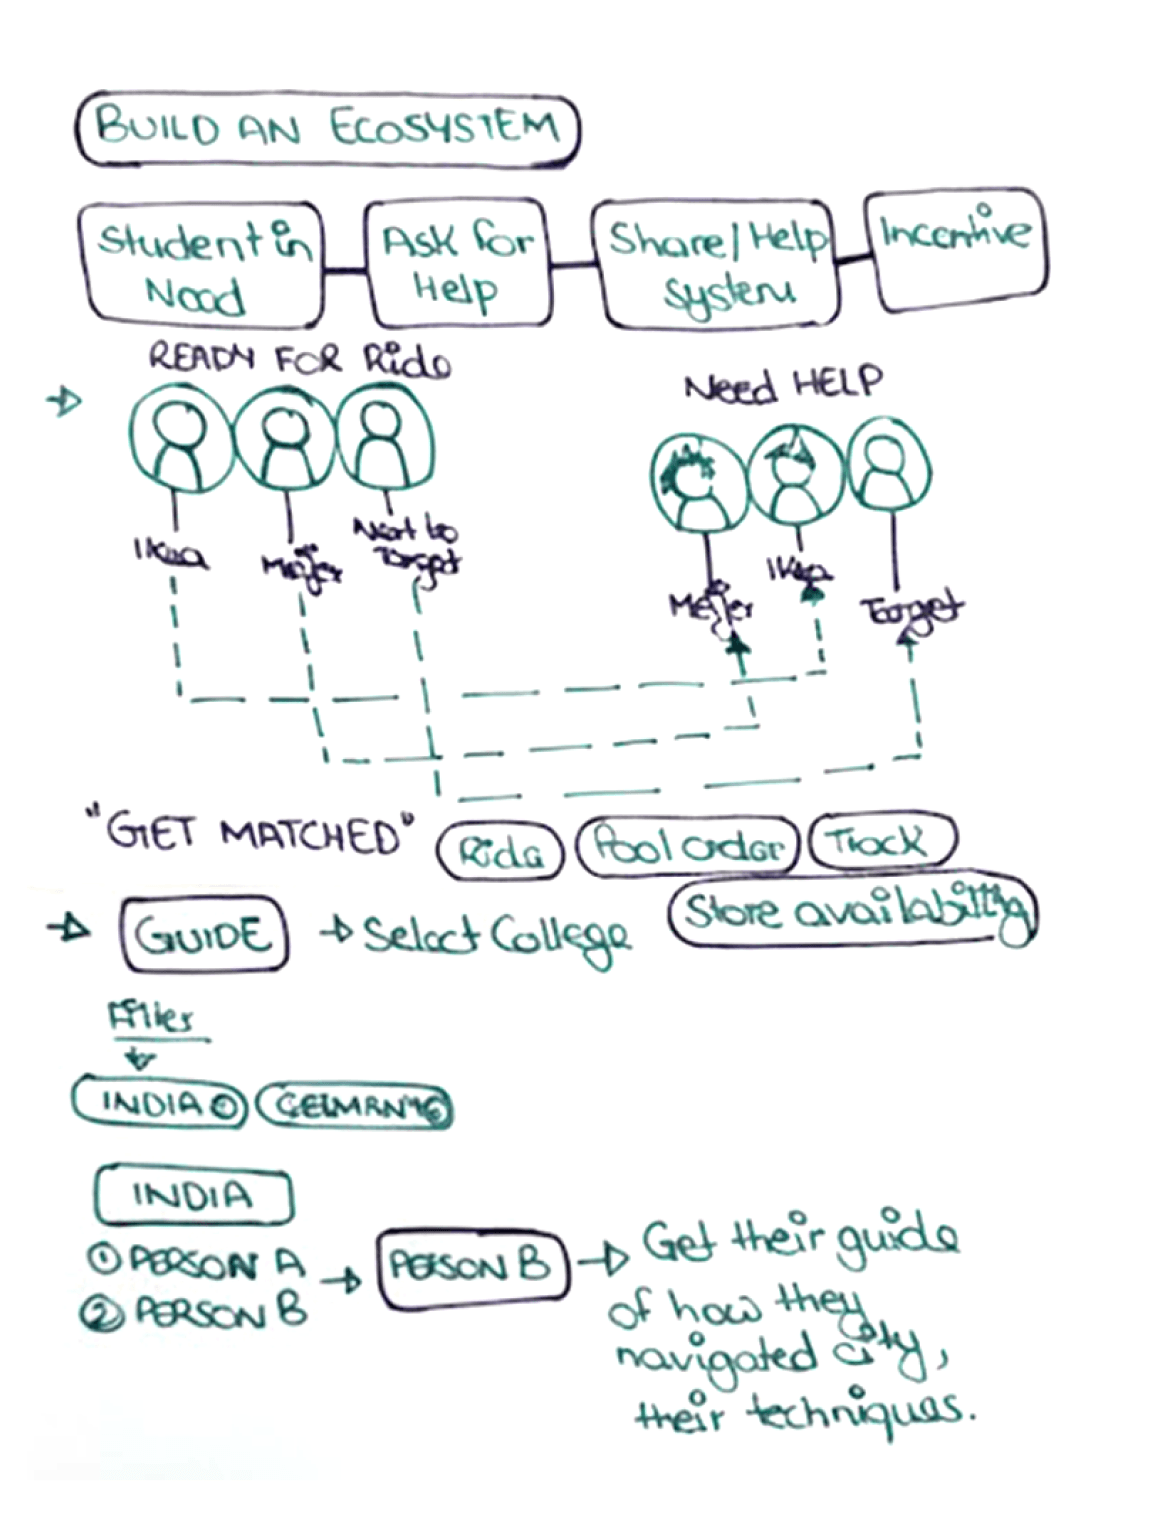 BUILD AN ECOSYSTEM
Student in Need
Ask for Help
Share/Help System
Incentive
READY FOR Ride
Need HELP
Ikea
Meijer
Next to Target
Meijer
Ikea
Target
"GET MATCHED"
Ride
Pool order
Track
Store availability
GUIDE
Select College
Filter
INDIA
INDIA
① PERSON A
② PERSON B
PERSON B
Get their guide
of how they
navigated city,
their techniques.